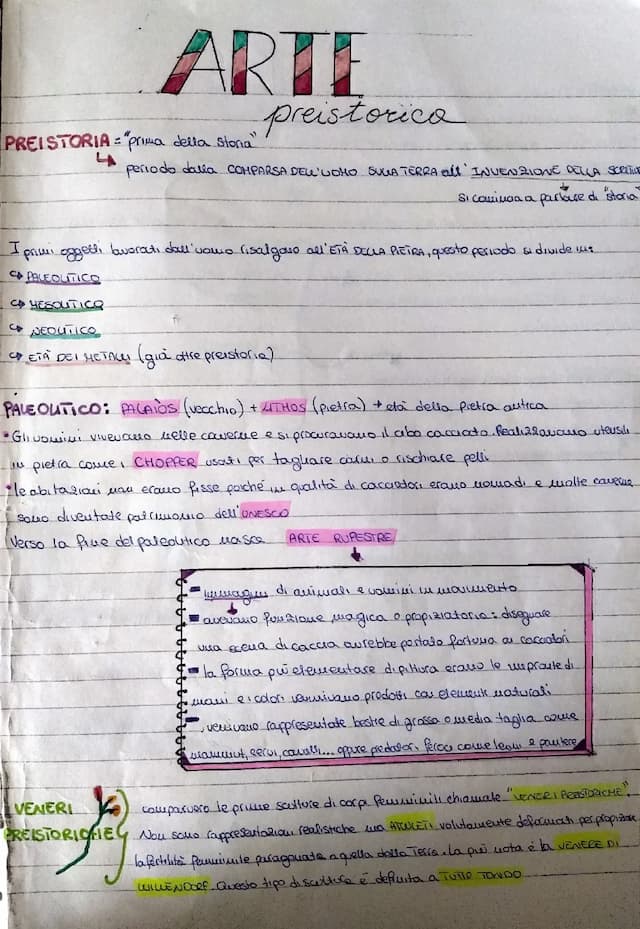 ARTE
preistorica
PREISTORIA = "prima della storia"
periodo dalla COMPARSA DELL'UOMO SULLA TERRA all' INVENZIONE DELLA
si comincia a parlare di "storia"
I primi oggetti lavorati dall'uomo risalgono all'ETÀ DELLA PIETRA, questo periodo si divide in:
↪ PALEOLITICO
↪ MESOLITICO
↪ NEOLITICO
↪ ETÀ DEI METALLI (già oltre preistoria)
PALEOLITICO: PALAIÒS (vecchio) + LITHOS (pietra) → età della pietra antica
• Gli uomini vivevano nelle caverne e si procuravano il cibo cacciato. Realizzavano utensili
in pietra come i CHOPPER usati per tagliare carni o rischiare pelli
• le abitazioni non erano fisse poiché in qualità di cacciatori erano nomadi e molte caverne
sono diventate patrimonio dell'UNESCO
Verso la fine del paleolitico nasce ARTE RUPESTRE
- immagini di animali e uomini in movimento
- avevano funzione magica o propiziatoria: disegnare
una scena di caccia avrebbe portato fortuna ai cacciatori
- la forma più elementare di pittura erano le impronte di
mani e i colori venivano prodotti con elementi naturali
- venivano rappresentate bestie di grossa o media taglia come
mammut, cervi, cavalli... oppure predatori feroci come leoni e pantere
VENERI
PREISTORICHE
comparvero le prime sculture di corpi femminili chiamate "VENERI PREISTORICHE".
Non sono rappresentazioni realistiche ma AMULETI volutamente deformati per propiziare
la fertilità femminile paragonata a quella della Terra. La più nota è la VENERE DI
WILLENDORF. Questo tipo di scultura è definita a TUTTO TONDO